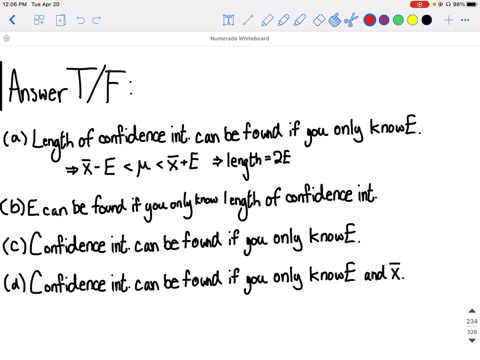 12:06 PM Tue Apr 20
98%
Numerade Whiteboard
Answer T/F:
(a) Length of confidence int. can be found if you only know E.
⇒ x̄ - E < μ < x̄ + E ⇒ length = 2E
(b) E can be found if you only know length of confidence int.
(c) Confidence int. can be found if you only know E.
(d) Confidence int. can be found if you only know E and x̄.
234
326